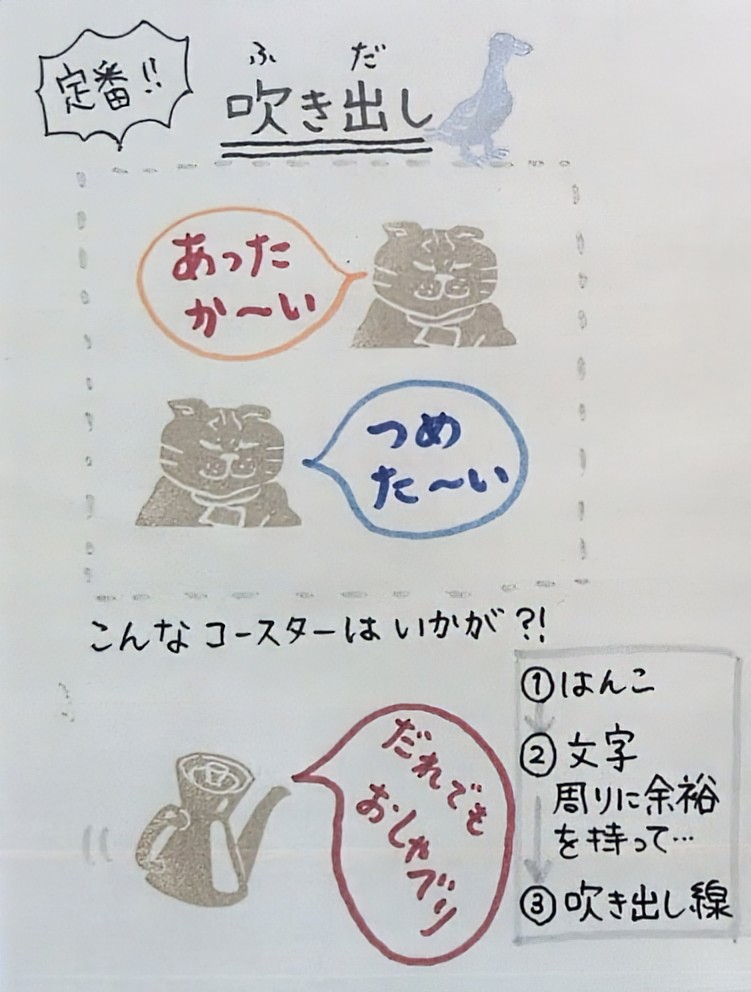 定番!!
ふ だ
吹き出し
あった
か〜い
つめ
た〜い
こんなコースターはいかが?!
①はんこ
②文字
周りに余裕
を持って…
③吹き出し線
だれでも
おしゃべり